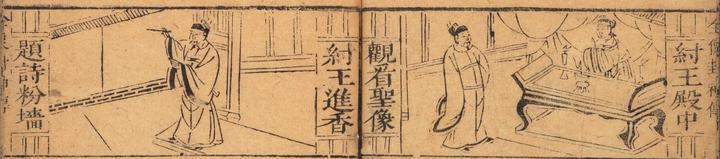 紂王殿中
觀看聖像
紂王進香
題詩粉墻